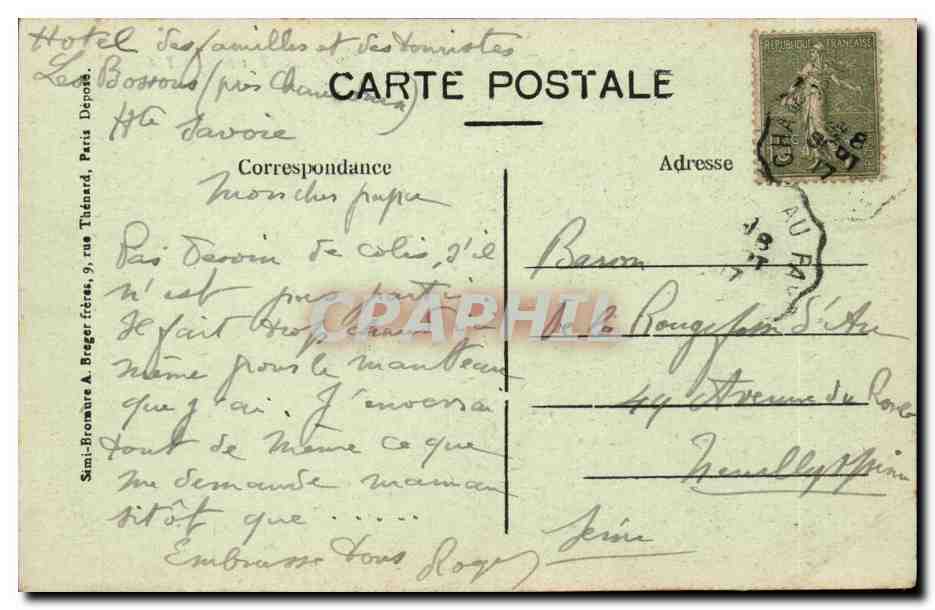 Hotel des familles et des touristes
Les Bossons (près Chamonix)
Hte Savoie
CARTE POSTALE
Correspondance
Adresse
REPUBLIQUE FRANÇAISE
Mon cher papa
Pas besoin de colis, s'il
n'est pas parti
Il fait trop chaud ici
même pour le manteau
que j'ai. J'enverrai
tout de même ce que
me demande maman
sitôt que .....
Embrasse tous Roger
Baron
de la Rouge d'An
49 Avenue du Roule
Neuilly s/Seine
Seine
CHA
AU FA
18
17
Simi-Bromure A. Breger frères, 9, rue Thénard, Paris Déposé.
CPAPHIL